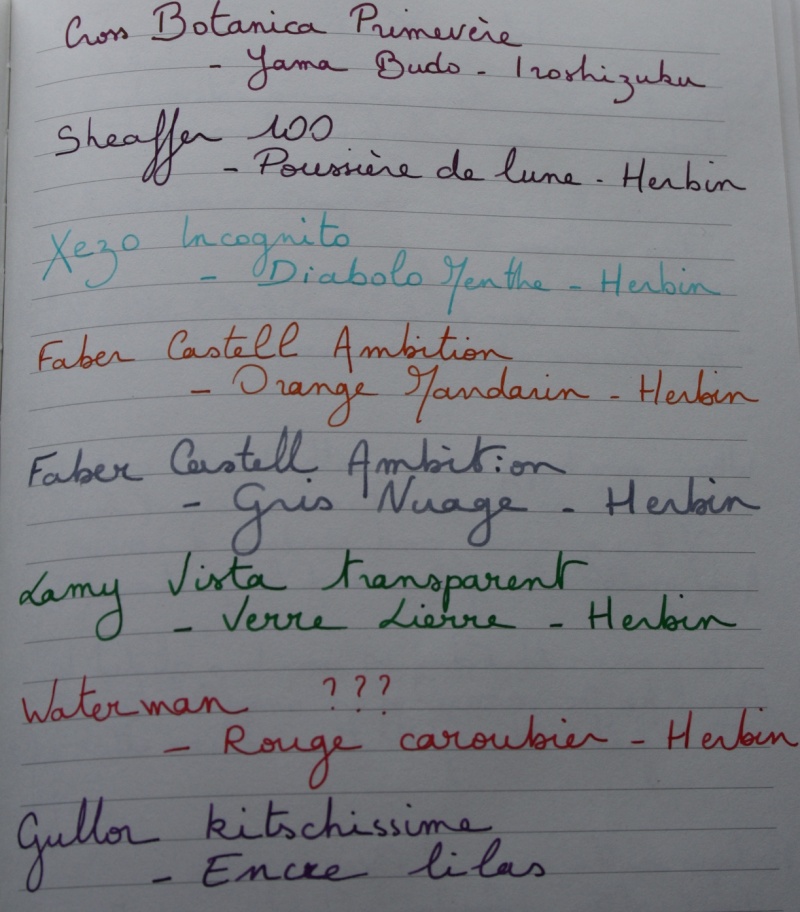 Cross Botanica Primevère
- Yama Budo - Iroshizuku
Sheaffer 100
- Poussière de lune - Herbin
Xezo Incognito
- Diabolo Menthe - Herbin
Faber Castell Ambition
- Orange Mandarin - Herbin
Faber Castell Ambition
- Gris Nuage - Herbin
Lamy Vista transparent
- Verre Lierre - Herbin
Waterman ???
- Rouge caroubier - Herbin
Gullor kitschissime
- Encre lilas